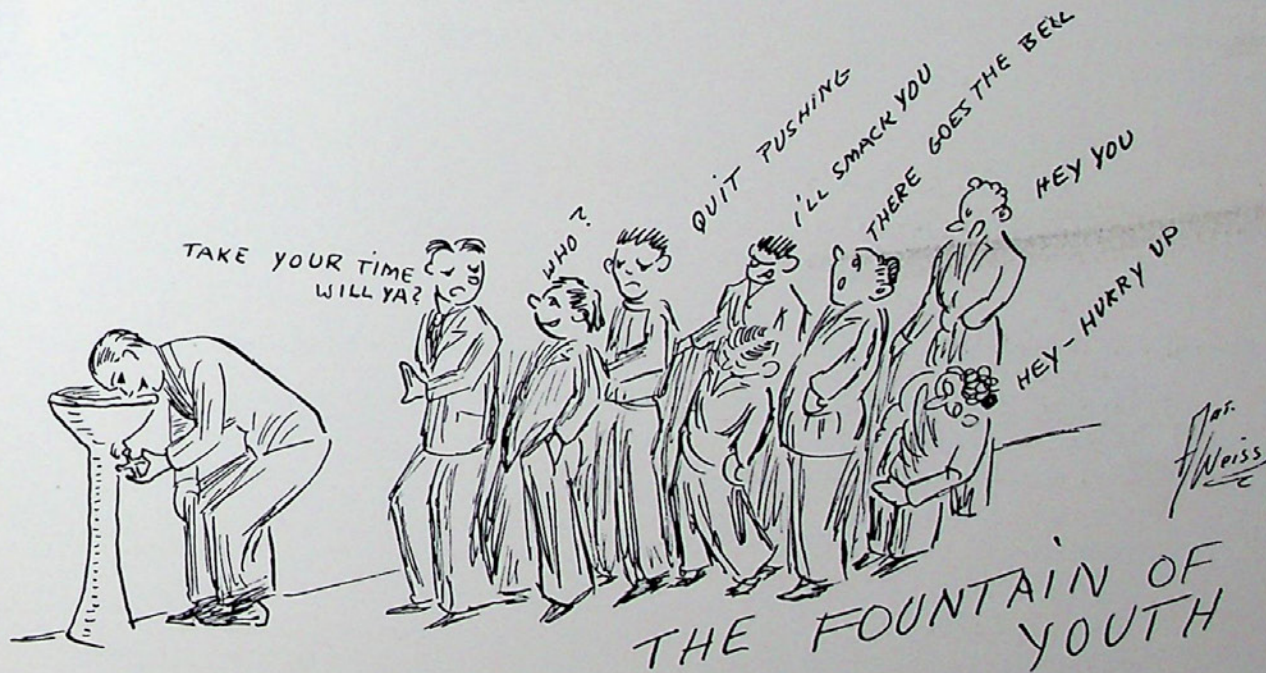 TAKE YOUR TIME
WILL YA?
WHO?
QUIT PUSHING
I'LL SMACK YOU
THERE GOES THE BELL
HEY YOU
HEY - HURRY UP
ART.
Weiss
THE FOUNTAIN OF
YOUTH